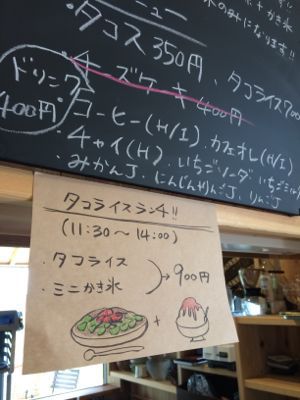 ニュー
のみになります!!
・タコス 350円、タコライス700
・チーズケーキ 400円
ドリンク
400円
コーヒー(H/I)、カフェオレ(H/I)
・チャイ(H)、いちごソーダ、いちご
・みかんJ、にんじんりんごJ、りんごJ
タコライスランチ!!
(11:30〜14:00)
・タコライス
・ミニかき氷
→900円
+